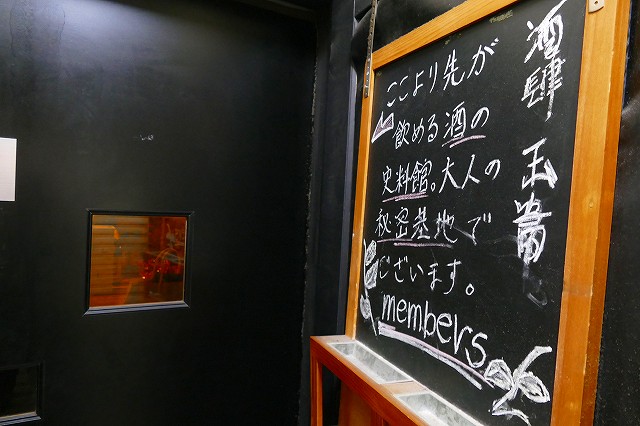 酒肆 玉箒
ここより先が
飲める酒の
史料館。大人の
秘密基地で
ございます。
members